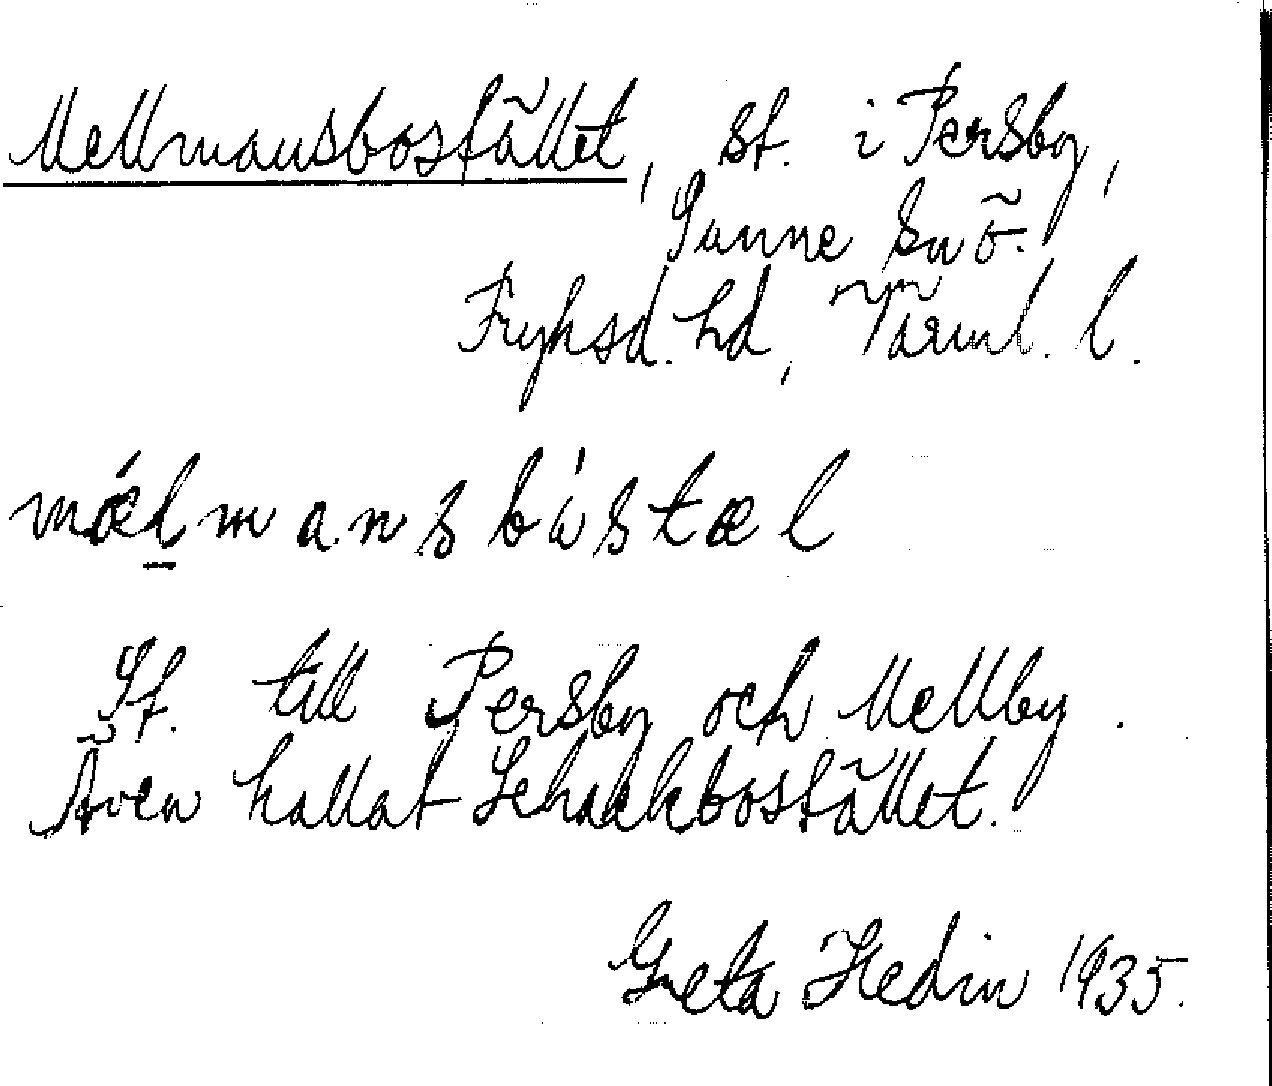 Mellmansbostället, st. i Persby,
Sunne sn ö.
Fryksd. hd, Värml. l.
mǽl̠mansbòstæl
St. till Persby och Mellby.
Även kallat Schackbostället.
Greta Hedin 1935.